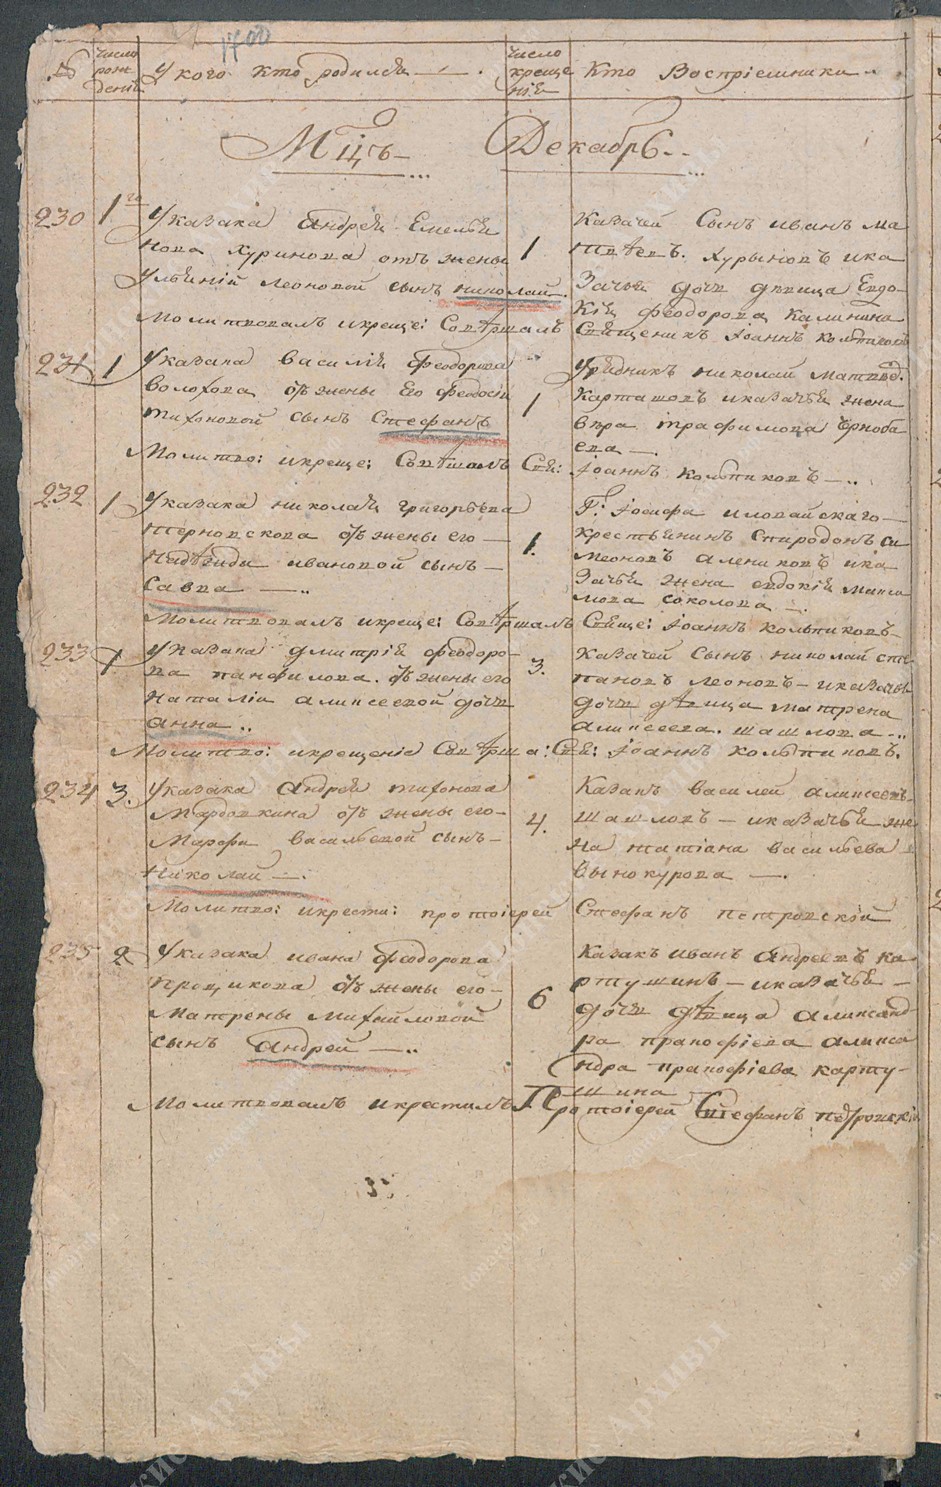 1700
№ число рожденія У кого кто родился число крещенія Кто Воспріемники
Мцъ Декабрь
230 1го У казака Андрея Емелья
нова Хуринова отъ жены
Ульяніи Леоновой сынъ Николай.
1
Казачей Сынъ иванъ Ма
твѣевъ Хурыновъ и ка
зачья дочь дѣвица Евдо-
кія Феодорова Калинина
Молитвовалъ и креще: Совѣршалъ Священикъ Іоаннъ Колпиковъ
231 1 У казака василія Феодорова
волохова отъ жены его Феодосіи
тихоновой сынъ Стефанъ
1
Урядникъ николай Матвѣ:
Карташовъ и казачья жена
вѣра трафимова Чернoба
ева —
Молитво: и креще: Совѣршалъ Свя: Іоаннъ Колпиковъ —..
232 1 У казака николая григорьева
терновскова отъ жены его —
Надѣжди ивановой сынъ —
Савва —..
1.
Г. Іосифа иловайскаго —
крестьянинъ Спиродонъ Си
меоновъ алениковъ и ка
зачья жена евдокія
мова соколова —.
Молитвовалъ и креще: Совѣршалъ Свяще: Іоаннъ Колпиковъ-
233 1 У казака дмитрія Феодоро-
ва панфилова. отъ жены его
Наталіи аликсеевой дочь
анна..
3.
Казачей Сынъ николай сте
пановъ Леоновъ — и казачья
дочь дѣвица матрена
аликсеева. шашлова —..
Молитво: и крещеніе Совѣрша: Свя: Іоаннъ Колпиковъ.
234 3. У казака Андрея тихонова
Мардовкина отъ жены его-
Марфы васильевой сынъ —
Николай —.
4.
Казакъ василей аликсеевъ
шашловъ — и казачья же
на татіана васильева
винокурова —.
Молитво: и крести: протоіерей Стефанъ петровскій
235 2 У казака ивана Феодорова
прощикова отъ жены его —
Матрены Михайловой
сынъ Андрей —..
6
Казакъ иванъ Андреевъ ка
ртушинъ — и казачья —
дочь дѣвица аликсанд
ра пракофіева аликса
ндра пракофіева карту-
шина
Молитвовалъ и крестилъ Протоіерей Стефанъ петровскій